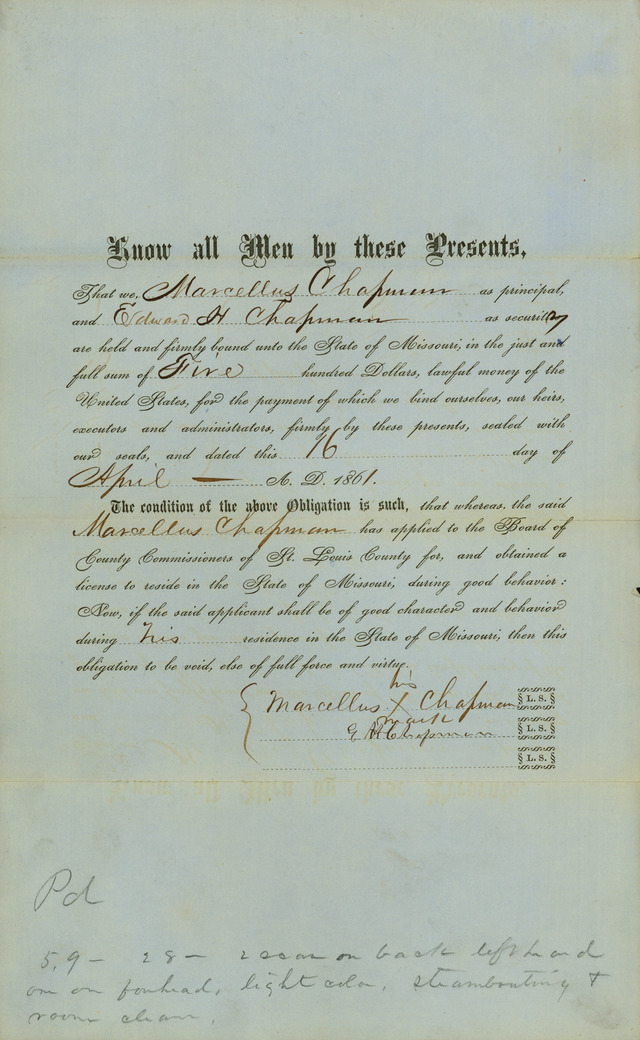 Know all Men by these Presents,
That we, Marcellus Chapman as principal,
and Edward H Chapman as security
are held and firmly bound unto the State of Missouri, in the just and
full sum of Five hundred Dollars, lawful money of the
United States, for the payment of which we bind ourselves, our heirs,
executors and administrators, firmly by these presents, sealed with
our seals, and dated this 16 day of
April — A. D. 1861.
The condition of the above Obligation is such, that whereas, the said
Marcellus Chapman has applied to the Board of
County Commissioners of St. Louis County for, and obtained a
license to reside in the State of Missouri, during good behavior:
Now, if the said applicant shall be of good character and behavior
during his residence in the State of Missouri, then this
obligation to be void, else of full force and virtue.
his
Marcellus X Chapman L. S.
mark
E H Chapman L. S.
L. S.
Pd
5,9 – 28 – 2 scar on back left hand
one on forhead, light color, steamboating &
room clean.